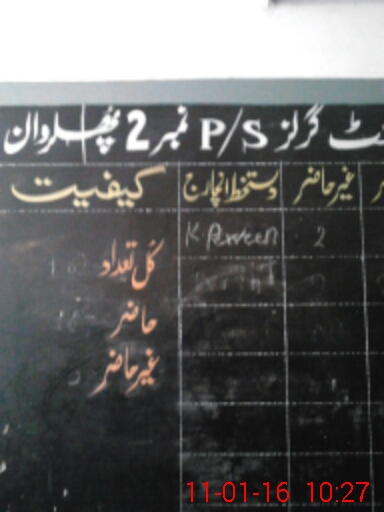 نٹ گرلز P/S نمبر 2 پھلروان
غیر حاضر دستخط انچارج کیفیت
2 K Parveen
کل تعداد
حاضر
غیر حاضر
11-01-16 10:27